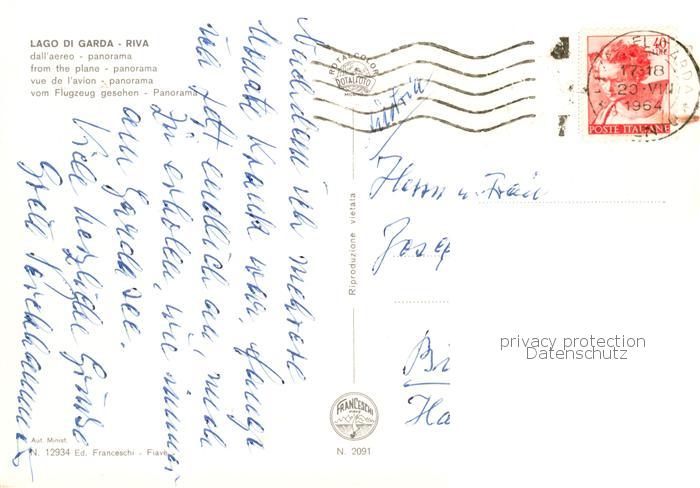 LAGO DI GARDA - RIVA
dall'aereo - panorama
from the plane - panorama
vue de l'avion - panorama
vom Flugzeug gesehen - Panorama
Nachdem ich mehrere
Monate krank war, fange
ich jetzt endlich an, mich
zu erholen, wie immer
am Gardasee.
Viele herzliche Grüße
Aut. Minist.
N. 12934 Ed. Franceschi - Fiave
Riproduzione vietata
ROTALCOLOR
ROTALFOTO
FRANCESCHI
N. 2091
40
17-18
1964
POSTE ITALIANE
Herrn u. Frau
Josef
Bi
Ha
privacy protection
Datenschutz